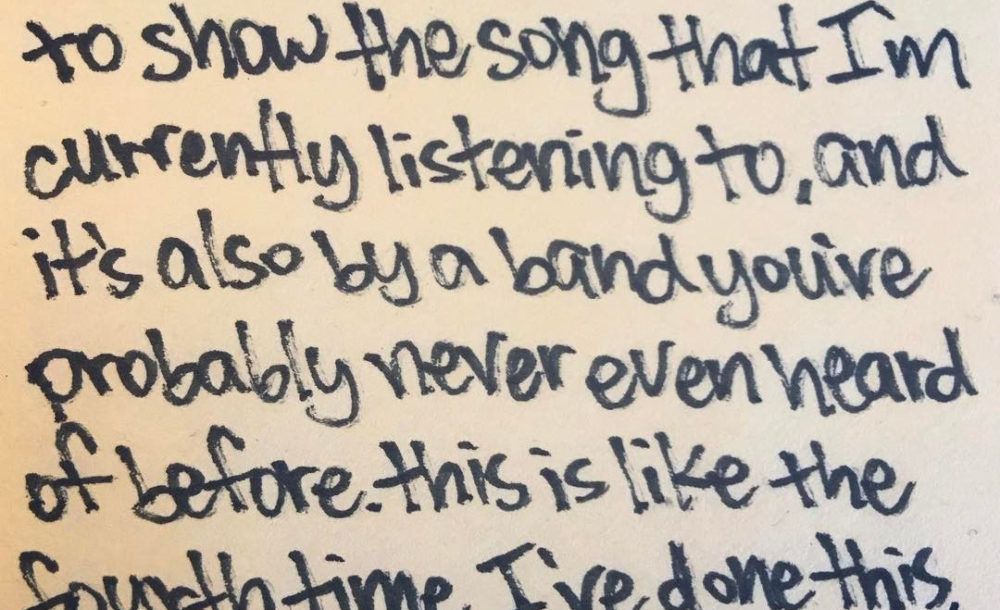 to show the song that I'm
currently listening to, and
it's also by a band you've
probably never even heard
of before. this is like the
fourth time I've done this